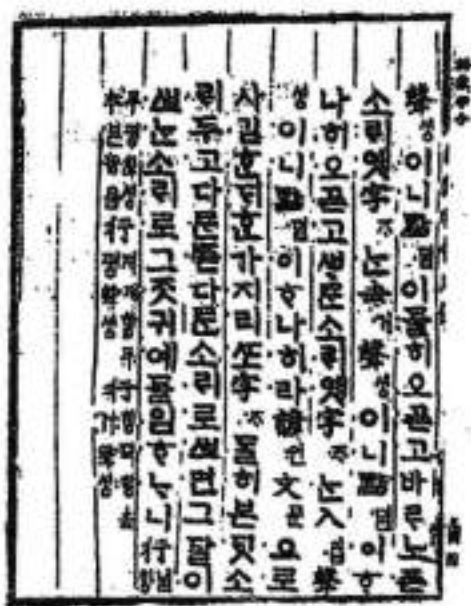 聲셩이니點뎜이둘히오곧고바ᄅᆞ노픈
소ᄅᆡ옛字ᄌᆞᄂᆞᆫ去거聲셩이니點뎜이ᄒᆞ
나히오곧고ᄲᆞᄅᆞᆫ소ᄅᆡ옛字ᄌᆞᄂᆞᆫ入입聲
셩이니點뎜이ᄒᆞ나히라諺언文문으로
사김ᄒᆞᆫᄃᆡᄒᆞᆫ가지라ᄯᅩ字ᄌᆞ둘히본ᄃᆡᆺ소
ᄅᆡ두고다ᄅᆞᆫᄠᅳᆮ다ᄅᆞᆫ소ᄅᆡ로ᄡᅳ면그달이
ᄡᅳᄂᆞᆫ소ᄅᆡ로그ᄌᆞᆺ귀예돌임ᄒᆞᄂᆞ니